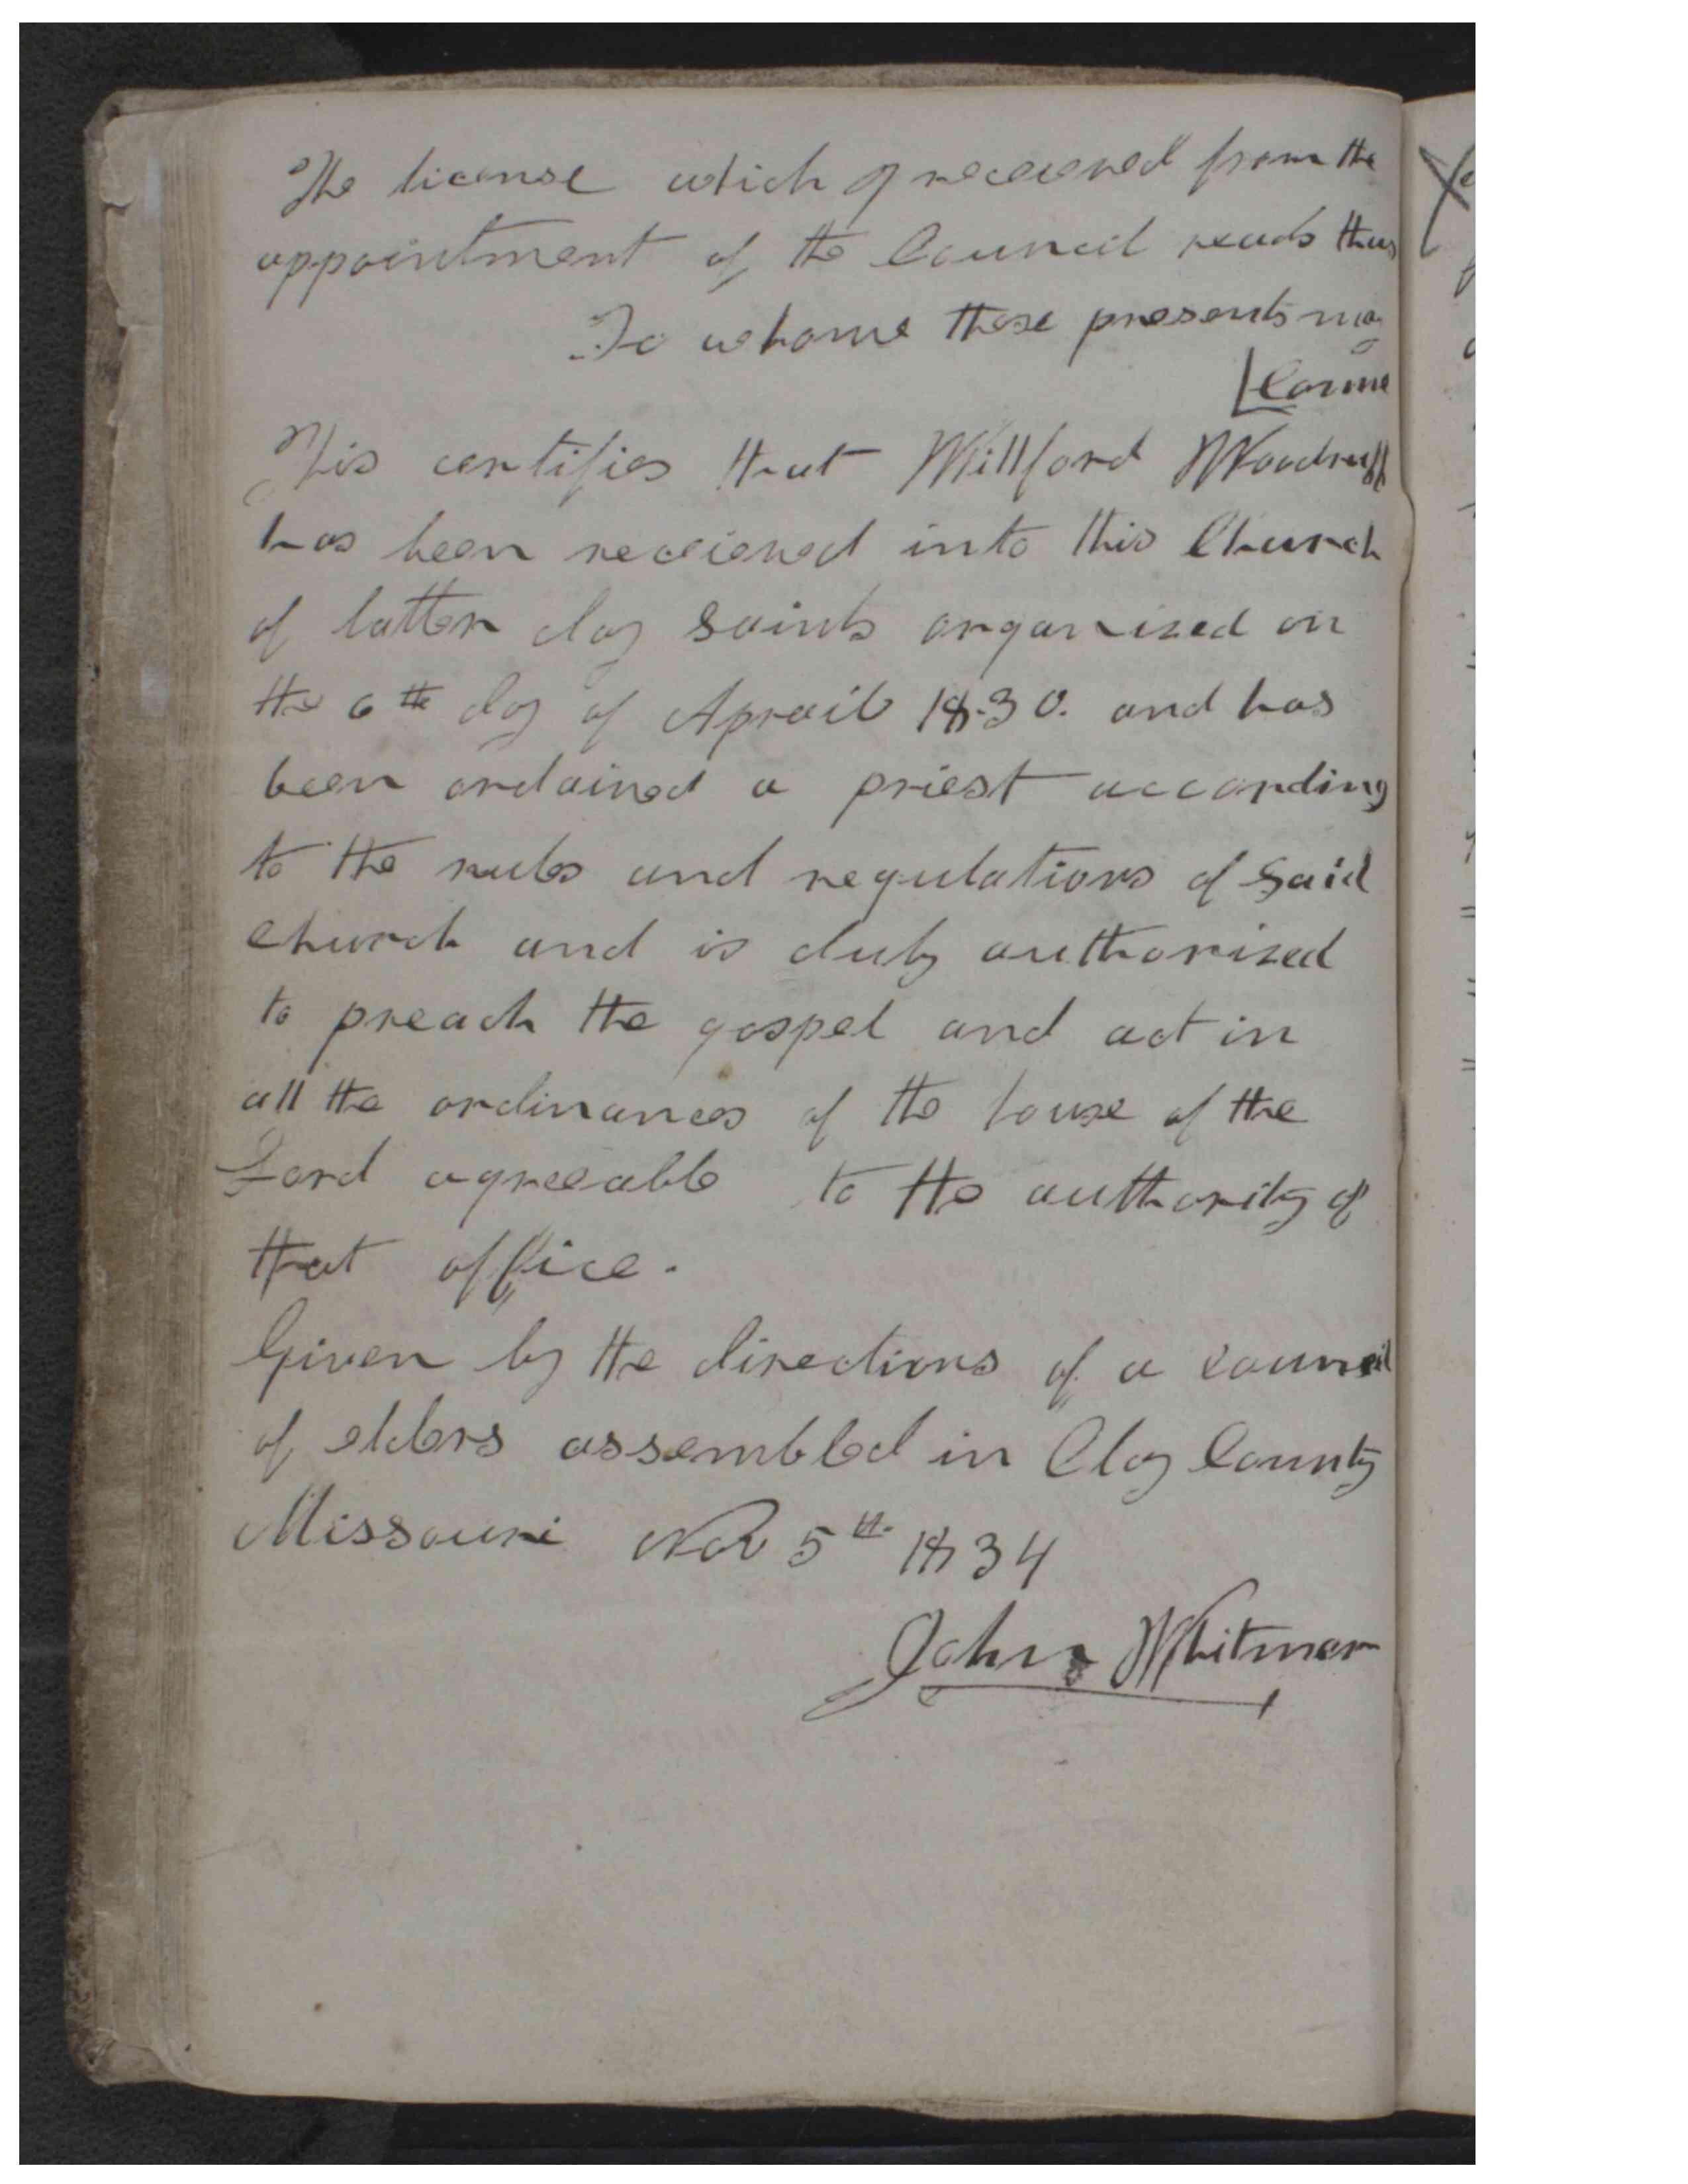 The license which I receieved from the
appointment of the Council reads thus
To whome these presents may
Come
This certifies that Willford Woodruff
has been receieved into this Church
of latter day saints organized on
the 6th day of Apraile 1830. and has
been ordained a priest according
to the rules and regulations of said
church and is duly authorized
to preach the gospel and act in
all the ordinances of the house of the
Lord agreeable to the authority of
that office.
Given by the directions of a council
of elders assembled in Clay County
Missouri Nov 5th 1834
John Whitmer